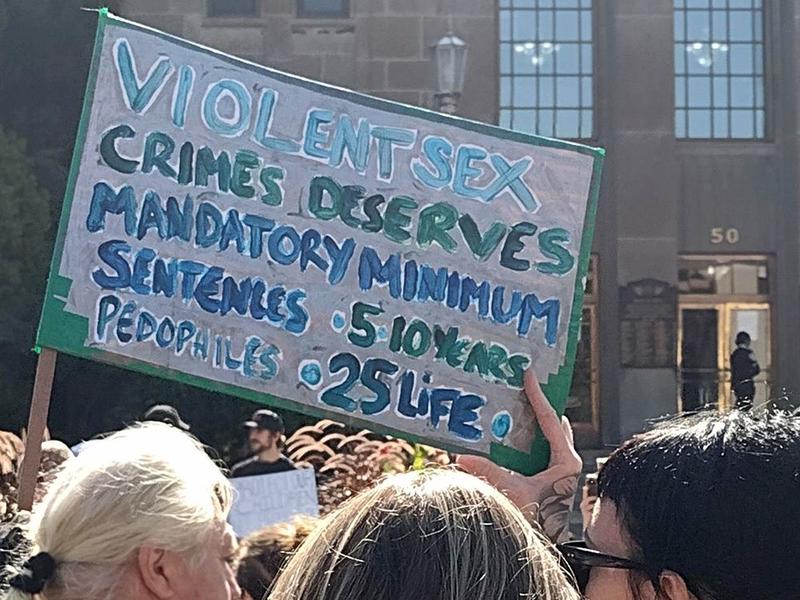 VIOLENT SEX
CRIMES DESERVES
MANDATORY MINIMUM
SENTENCES • 5-10 YEARS
PEDOPHILES • 25 LiFE •
50
CHILDREN